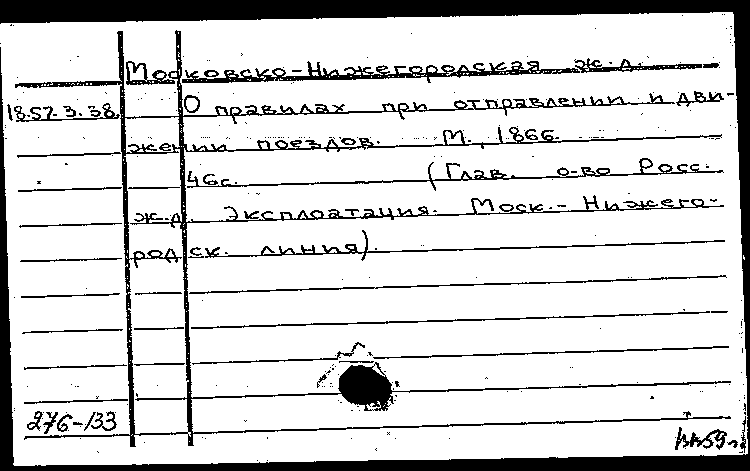 Московско-Нижегородская ж.д.
18.57.3.38. О правилах при отправлении и дви-
жении поездов. М., 1866.
46с. (Глав. о-во Росс.
ж.д. Эксплоатация. Моск.- Нижего-
родск. линия).
276-133